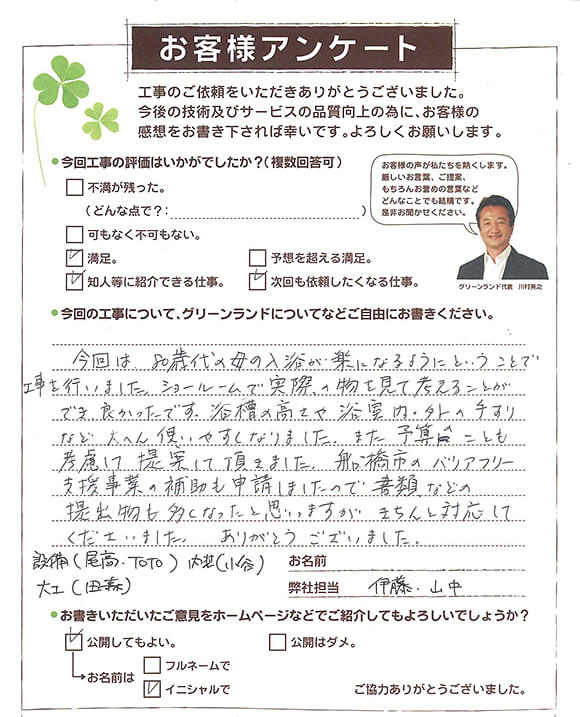 お客様アンケート
工事のご依頼をいただきありがとうございました。
今後の技術及びサービスの品質向上の為に、お客様の
感想をお書き下されば幸いです。よろしくお願いします。
今回工事の評価はいかがでしたか？（複数回答可）
お客様の声が私たちを熱くします。
厳しいお言葉、ご提案、
もちろんお誉めの言葉など
どんなことでも結構です。
是非お聞かせください。
グリーンランド代表 川村英之
不満が残った。
（どんな点で？：　）
可もなく不可もない。
満足。 予想を超える満足。
知人等に紹介できる仕事。 次回も依頼したくなる仕事。
今回の工事について、グリーンランドについてなどご自由にお書きください。
今回は 80歳代の母の入浴が楽になるようにということで
工事を行いました。ショールームで実際の物を見て考えることが
でき良かったです。浴槽の高さや浴室内・外の手すり
など大へん使いやすくなりました。また予算のことも
考慮して提案して頂きました。船橋市のバリアフリー
支援事業の補助も申請しましたので書類などの
提出物も多くなったと思いますがきちんと対応して
くださいました。 ありがとうございました。
設備（尾高・TOTO） 内装（小谷） お名前
大工（田森） 弊社担当 伊藤・山中
お書きいただいたご意見をホームページなどでご紹介してもよろしいでしょうか？
公開してもよい。 公開はダメ。
お名前は フルネームで
イニシャルで
ご協力ありがとうございました。